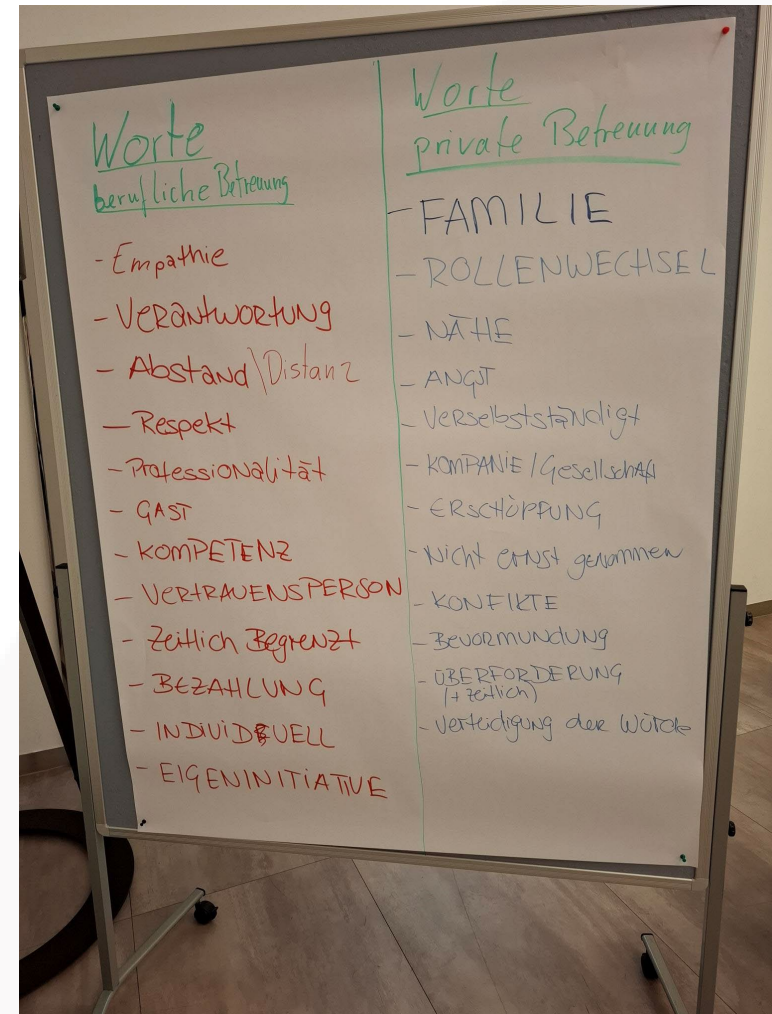 Worte
berufliche Betreuung
- Empathie
- Verantwortung
- Abstand \ Distanz
- Respekt
- Professionalität
- GAST
- KOMPETENZ
- VERTRAUENSPERSON
- Zeitlich Begrenzt
- BEZAHLUNG
- INDIVIDUELL
- EIGENINITIATIVE
Worte
private Betreuung
- FAMILIE
- ROLLENWECHSEL
- NÄHE
- ANGST
- Verselbstständigt
- KOMPANIE / Gesellschaft
- ERSCHÖPFUNG
- Nicht ernst genommen
- KONFIKTE
- BEVORMUNDUNG
- ÜBERFORDERUNG
(+ zeitlich)
- Verteidigung der Würde